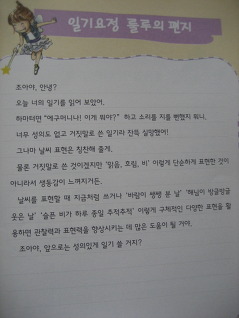 일기요정 룰루의 편지
조아야, 안녕?
오늘 너의 일기를 읽어 보았어.
하마터면 "에구머니나! 이게 뭐야?" 하고 소리를 지를 뻔했지 뭐니.
너무 성의도 없고 거짓말로 쓴 일기라 잔뜩 실망했어!
그나마 날씨 표현은 칭찬해 줄게.
물론 거짓말로 쓴 것이겠지만 '맑음, 흐림, 비' 이렇게 단순하게 표현한 것이
아니라서 생동감이 느껴지거든.
날씨를 표현할 때 지금처럼 쓰거나 '바람이 쌩쌩 분 날' '해님이 방글방글
웃은 날' '슬픈 비가 하루 종일 추적추적' 이렇게 구체적인 다양한 표현을 활
용하면 관찰력과 표현력을 향상시키는 데 많은 도움이 될 거야.
조아야, 앞으로는 성의있게 일기 쓸 거지?